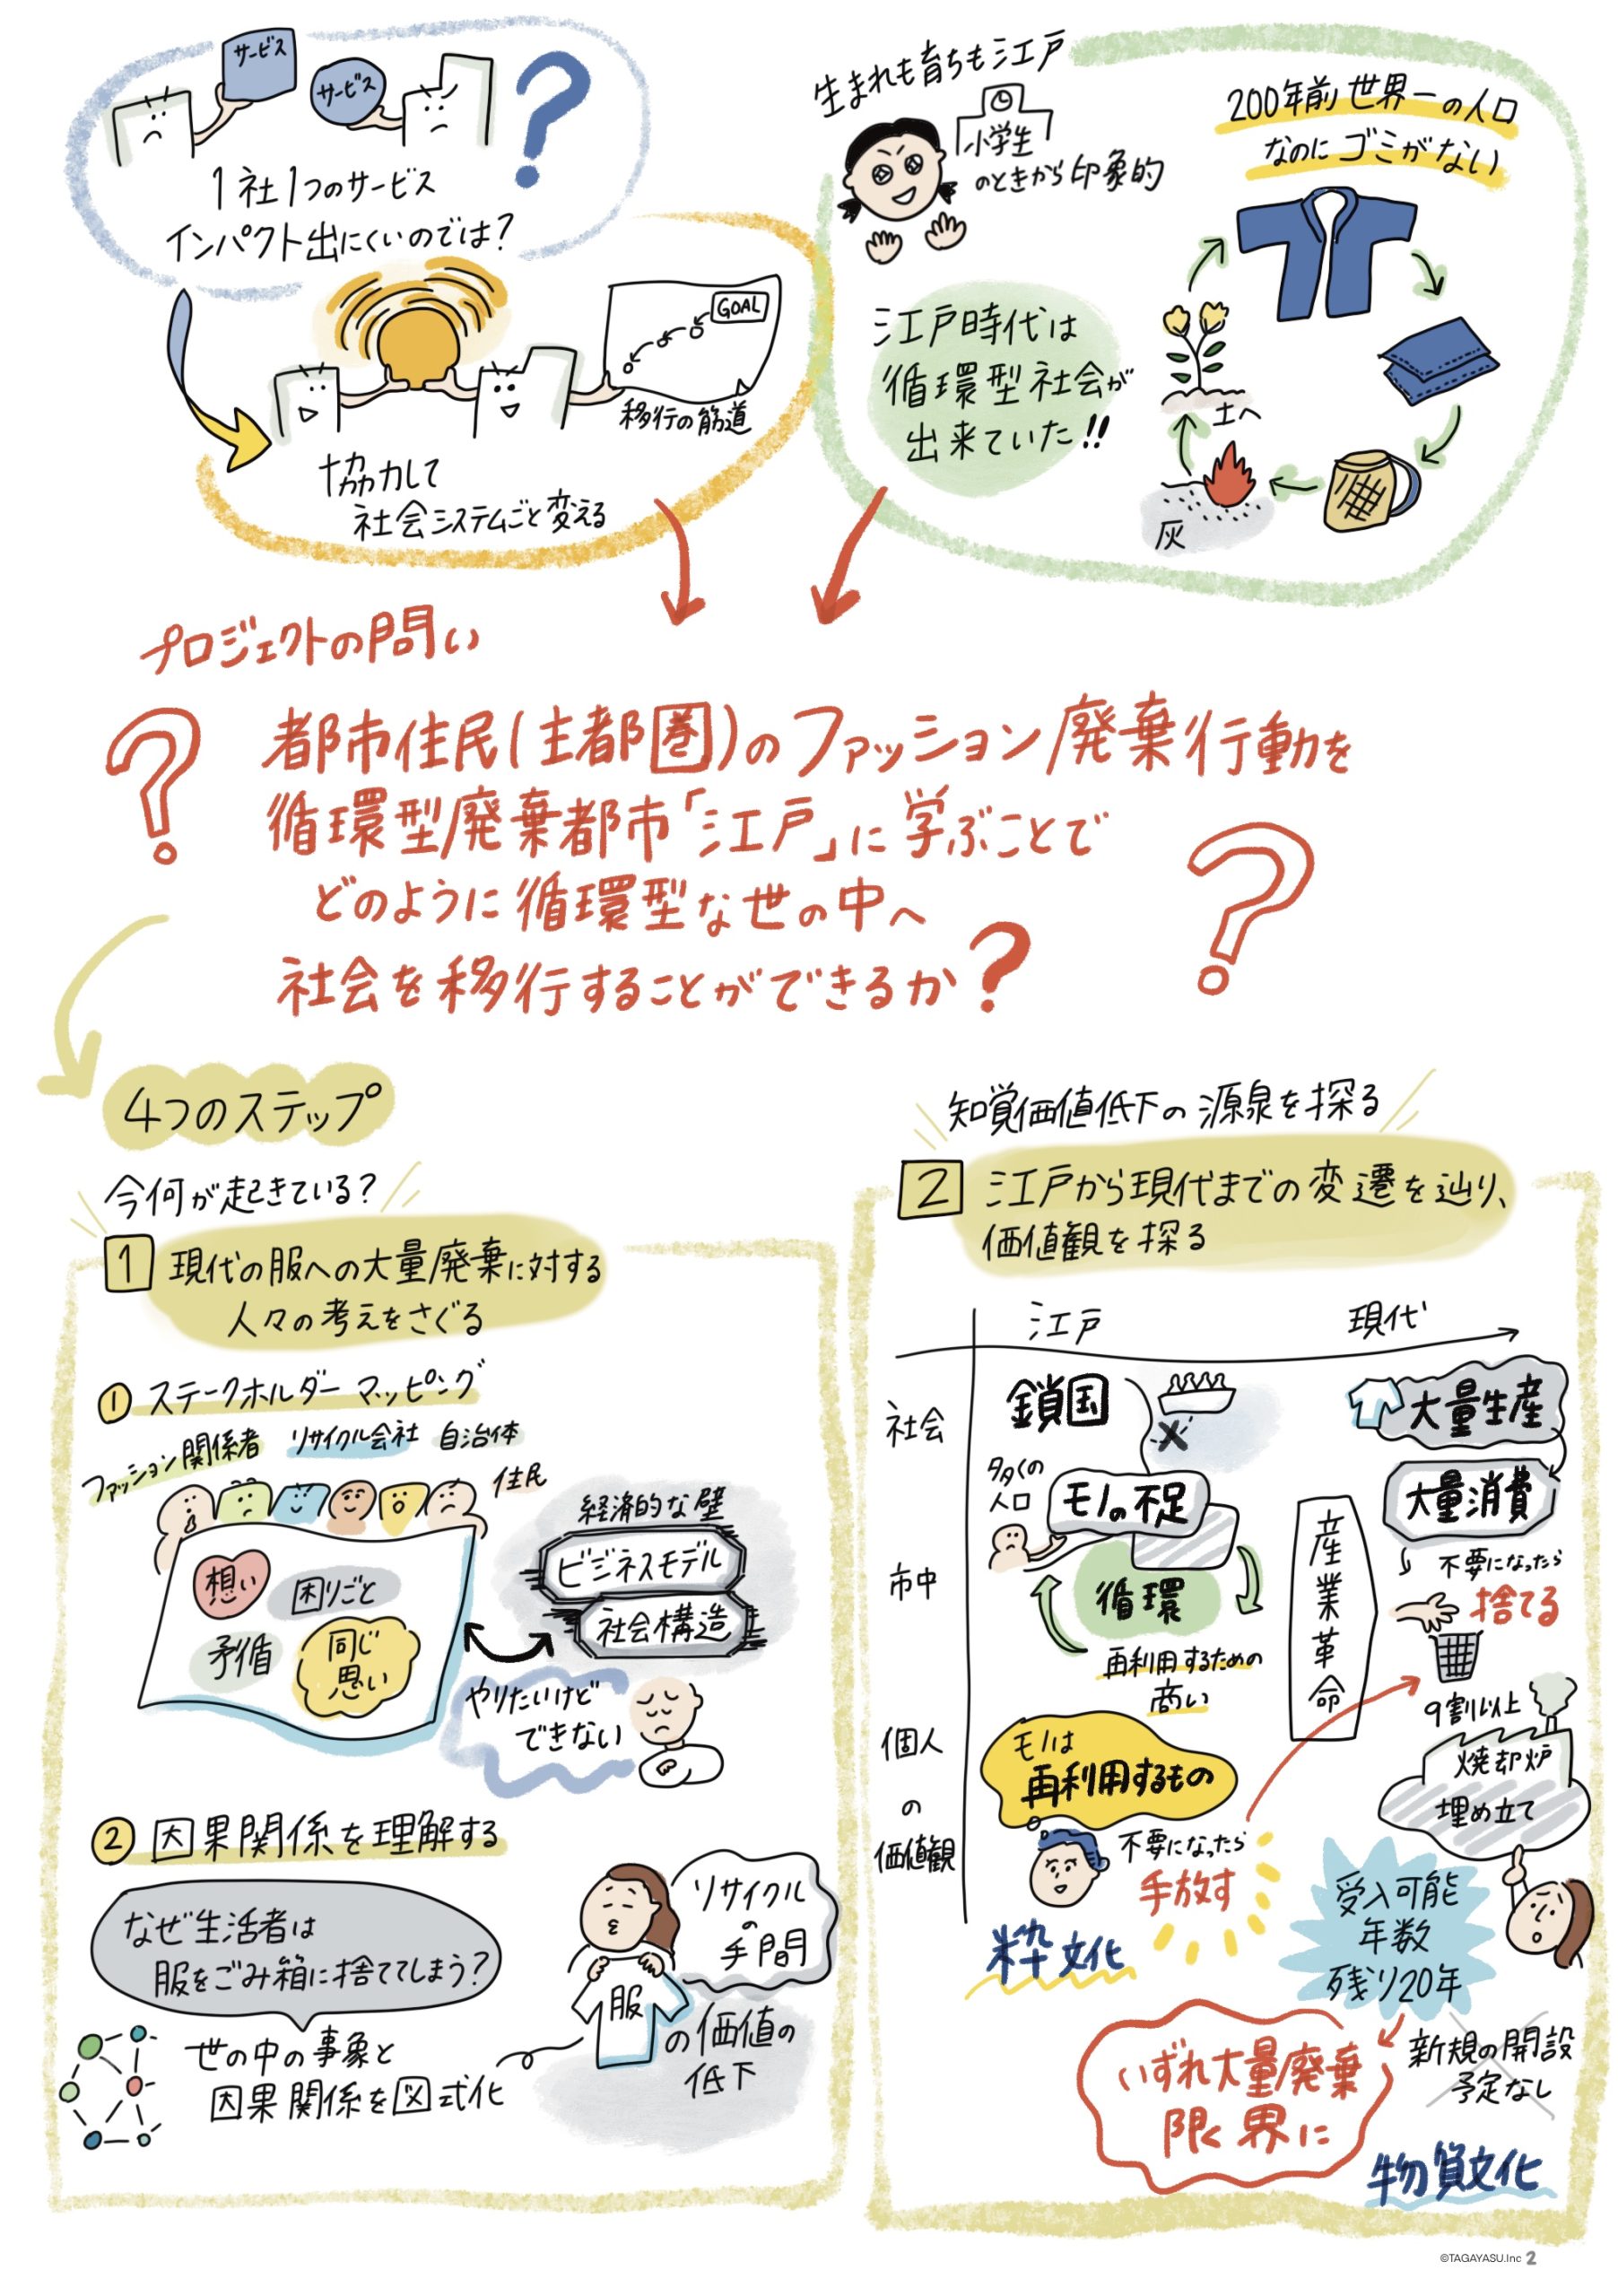 サービス
サービス
1社1つのサービス
インパクト出にくいのでは?
GOAL
移行の筋道
協力して
社会システムごと変える
生まれも育ちも江戸
小学生
のときから印象的
200年前世界一の人口
なのにゴミがない
江戸時代は
循環型社会が
出来ていた!!
土へ
灰
プロジェクトの問い
都市住民(主都圏)のファッション廃棄行動を
循環型廃棄都市「江戸」に学ぶことで
どのように循環型な世の中へ
社会を移行することができるか?
4つのステップ
今何が起きている?
1 現代の服への大量廃棄に対する
人々の考えをさぐる
① ステークホルダーマッピング
ファッション関係者 リサイクル会社 自治体
住民
想い
困りごと
矛盾
同じ
思い
経済的な壁
ビジネスモデル
社会構造
やりたいけど
できない
② 因果関係を理解する
なぜ生活者は
服をごみ箱に捨ててしまう?
世の中の事象と
因果関係を図式化
リサイクル
の
手間
服
の価値の
低下
知覚価値低下の源泉を探る
2 江戸から現代までの変遷を辿り、
価値観を探る
江戸
現代
社会
鎖国
大量生産
多くの
人口
モノの不足
大量消費
市中
循環
再利用するための
商い
産業革命
不要になったら
捨てる
9割以上
焼却炉
埋め立て
個人
の
価値観
モノは
再利用するもの
不要になったら
手放す
粋文化
受入可能
年数
残り20年
新規の開設
予定なし
いずれ大量廃棄
限界に
物質文化
©TAGAYASU.Inc 2